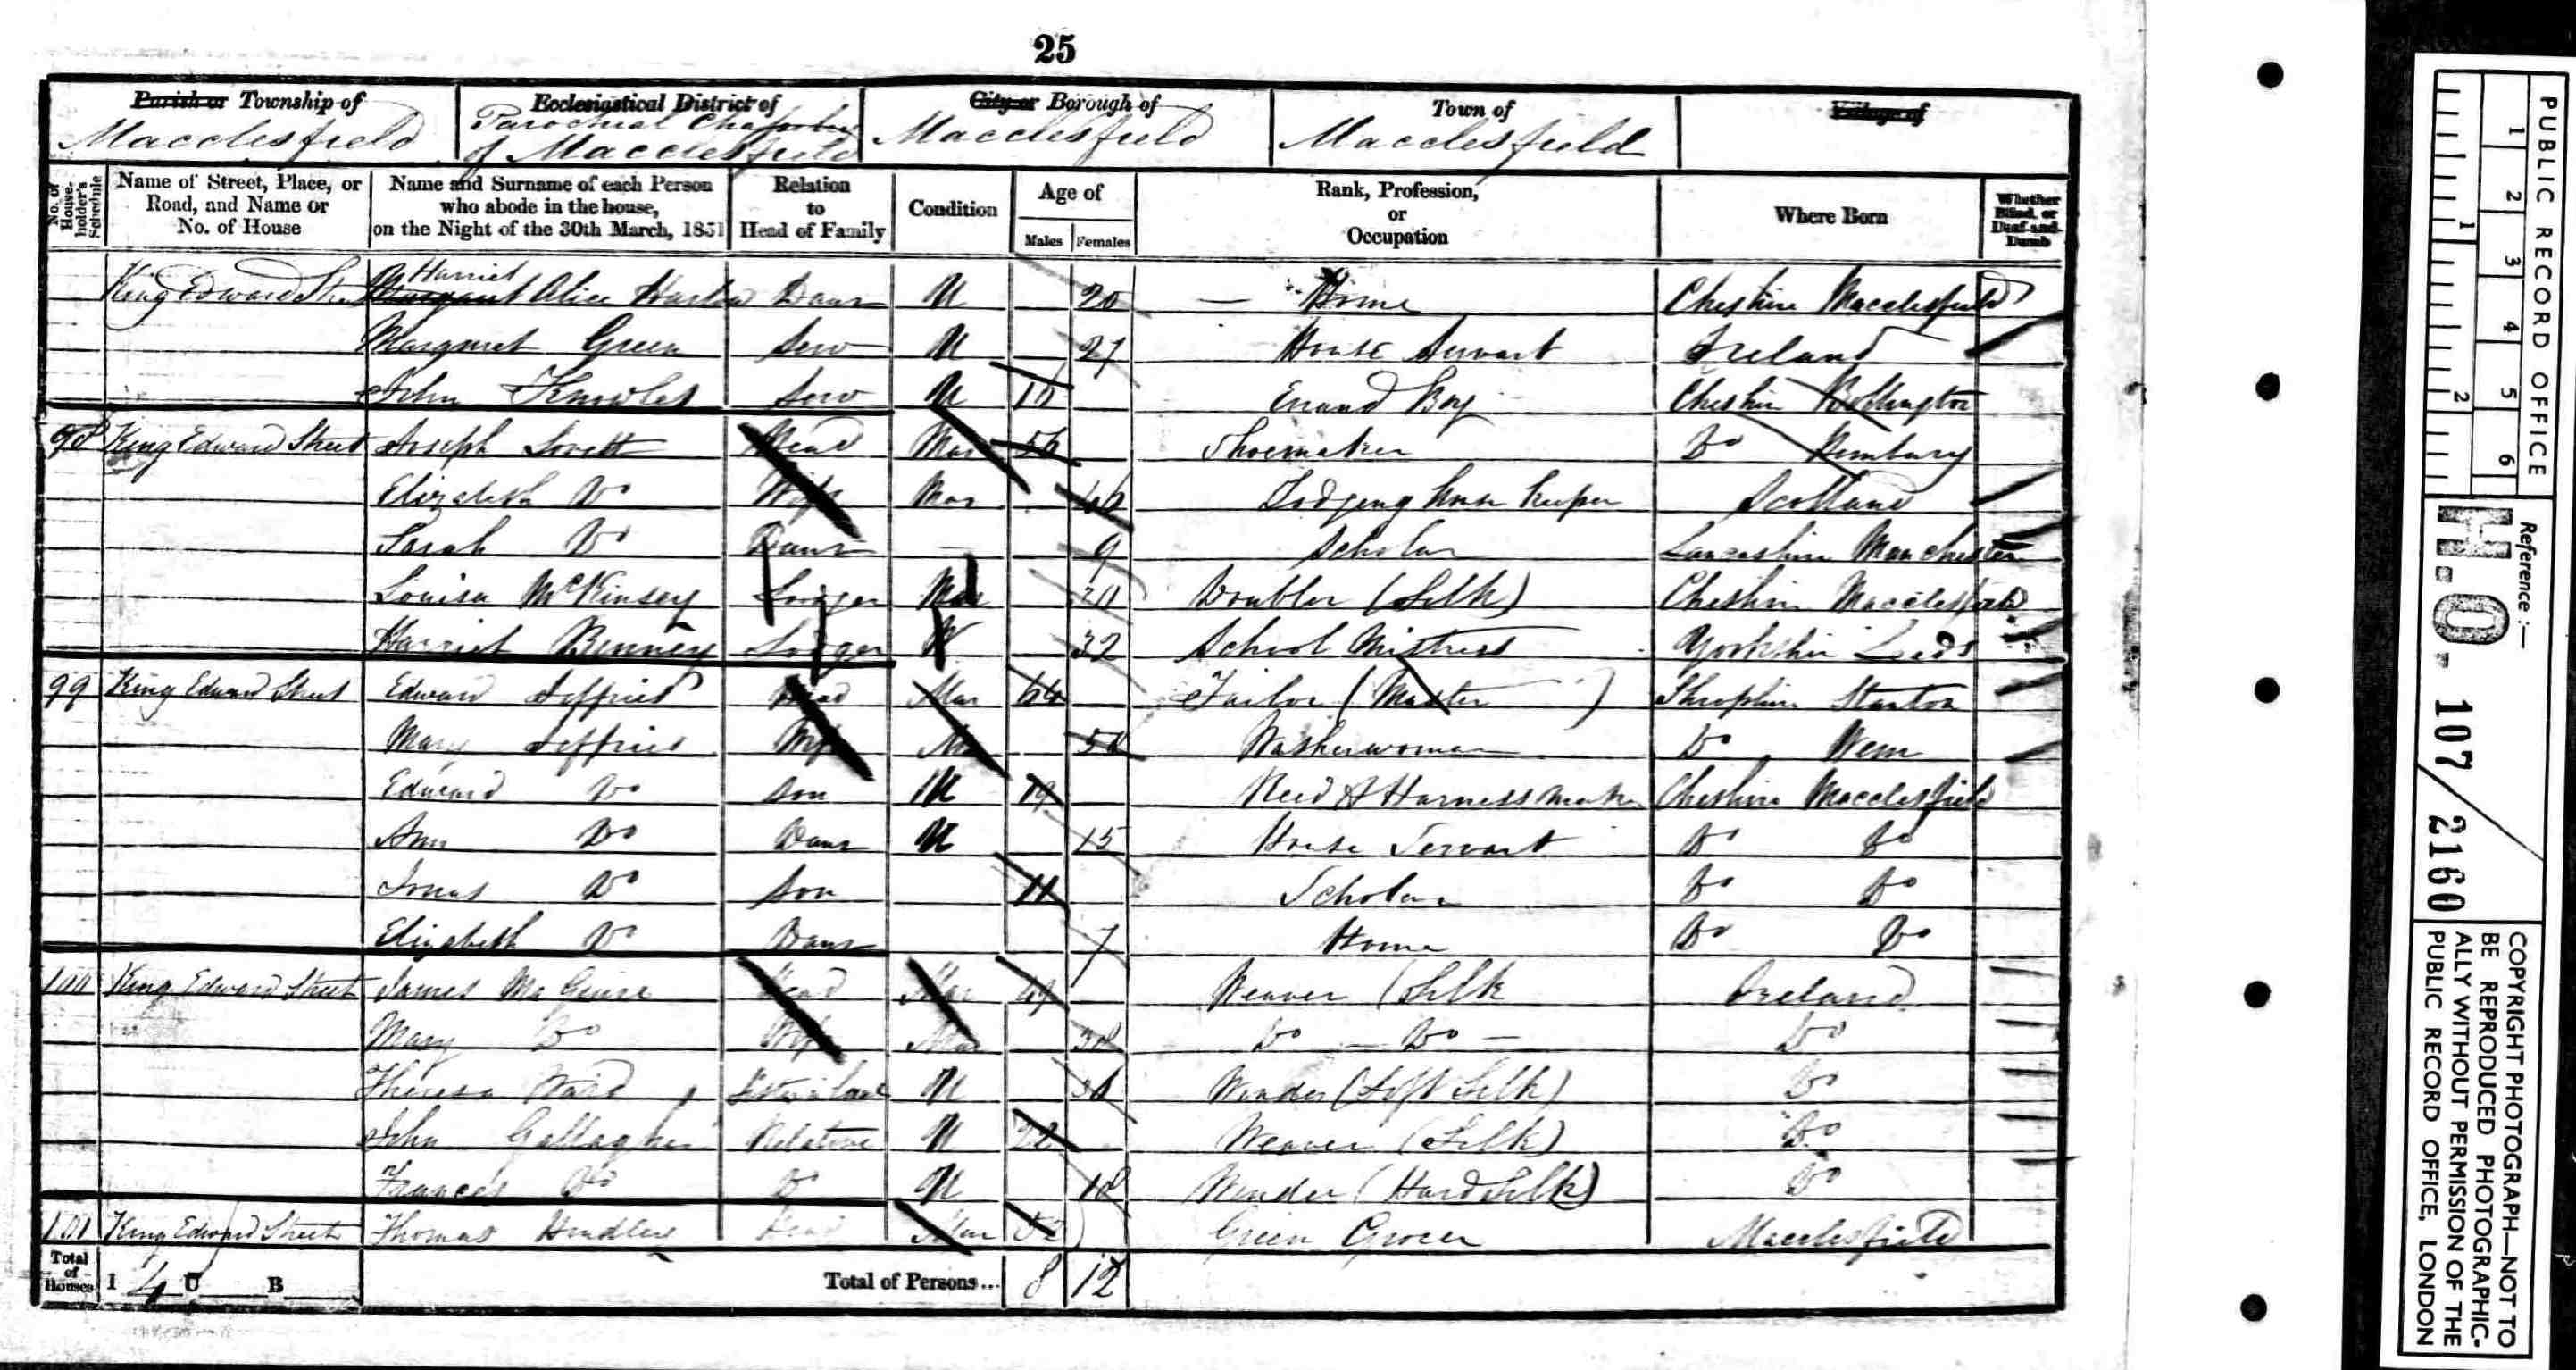 25
Parish or Township of Ecclesiastical District of City or Borough of Town of Village of
Macclesfield Parochial Chapelry of Macclesfield Macclesfield Macclesfield
No. of House-holder's Schedule
Name of Street, Place, or Road, and Name or No. of House
Name and Surname of each Person who abode in the house, on the Night of the 30th March, 1851
Relation to Head of Family
Condition
Age of
Males Females
Rank, Profession, or Occupation
Where Born
Whether Blind, or Deaf-and-Dumb
King Edward Harriet Alice Daur U 20 — Home Cheshire Macclesfield
Margaret Green Serv U 27 House Servant Ireland
John Knowles Serv U 16 Errand Boy Cheshire Bollington
98 King Edward Street Joseph Lovett Head Mar 56 Shoemaker Do
Elizabeth Do Wife Mar 46 Lodging house keeper Scotland
Sarah Do Daur — 9 Scholar Lancashire Manchester
Louisa McKinsey Lodger Mar Doubler (Silk) Cheshire Macclesfield
Harriet Benney Lodger W 32 School Mistress Yorkshire Leeds
99 King Edward Street Edward Jeffries Head Mar 64 Tailor (Master ) Shropshire Stanton
Mary Jeffries Wife Mar Washerwoman Do Wem
Edward Do Son U 19 Reed & Harness maker Cheshire Macclesfield
Ann Do Daur U 15 House Servant Do Do
Do Son 11 Scholar Do Do
Elizabeth Do Daur 7 Home Do Do
100 King Edward Street James Mc Guire Head Mar Weaver (Silk Ireland
Mary Do Wife Mar 38 Do — Do — Do
Theresa Ward Sister in law U Winder (Soft Silk) Do
John Gallagher Relative U 22 Weaver (Silk) Do
Frances Do Do U 18 Winder (Hard Silk) Do
101 King Edward Street Thomas Head Mar Green Grocer Macclesfield
Total of Houses I 4 U B Total of Persons... 8 12
PUBLIC RECORD OFFICE
1 2 3 4 5 6
1 2
Reference:—
H.O. 107/2160
COPYRIGHT PHOTOGRAPH—NOT TO
BE REPRODUCED PHOTOGRAPHIC-
ALLY WITHOUT PERMISSION OF THE
PUBLIC RECORD OFFICE, LONDON